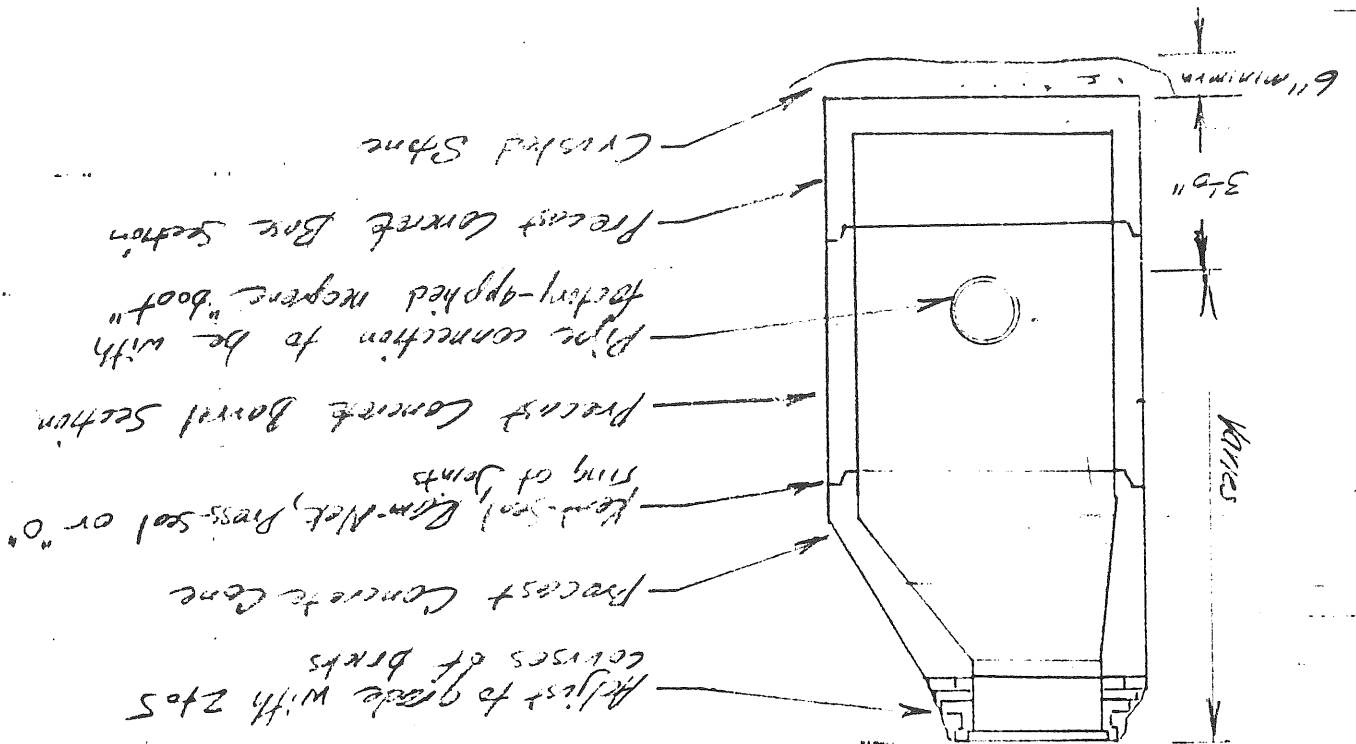 Adjust to grade with 2 to 5
courses of bricks
Precast Concrete Cone
Kent-Seal, Ram-Nek, Press-Seal or "O"
ring at Joints
Precast Concrete Barrel Section
Pipe connection to be with
factory-applied neoprene "boot"
Precast Concrete Base Section
Crushed Stone
Varies
3'-0"
6" minimum